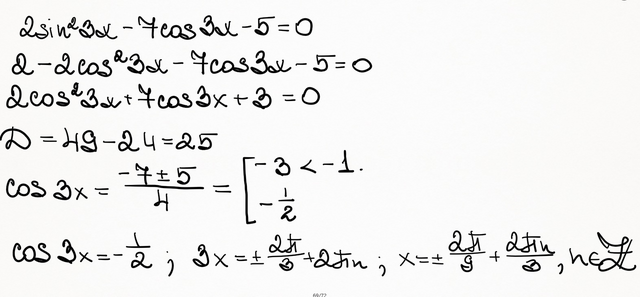 2sin²3x - 7cos3x - 5 = 0
2 - 2cos²3x - 7cos3x - 5 = 0
2cos²3x + 7cos3x + 3 = 0
D = 49 - 24 = 25
cos 3x = (-7 ± 5)/4 = [ -3 < -1.
-1/2
cos 3x = -1/2 ; 3x = ± 2π/3 + 2πn ; x = ± 2π/9 + 2πn/3 , n∈ℤ
69/72